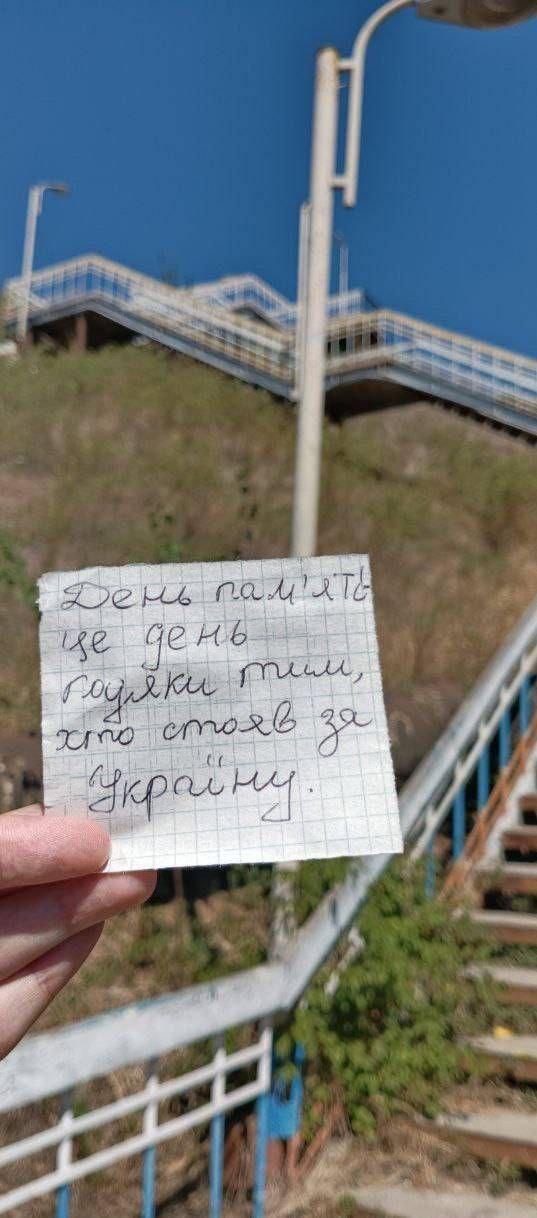 День пам'ять
це день
подяки тим,
хто стояв за
Україну.